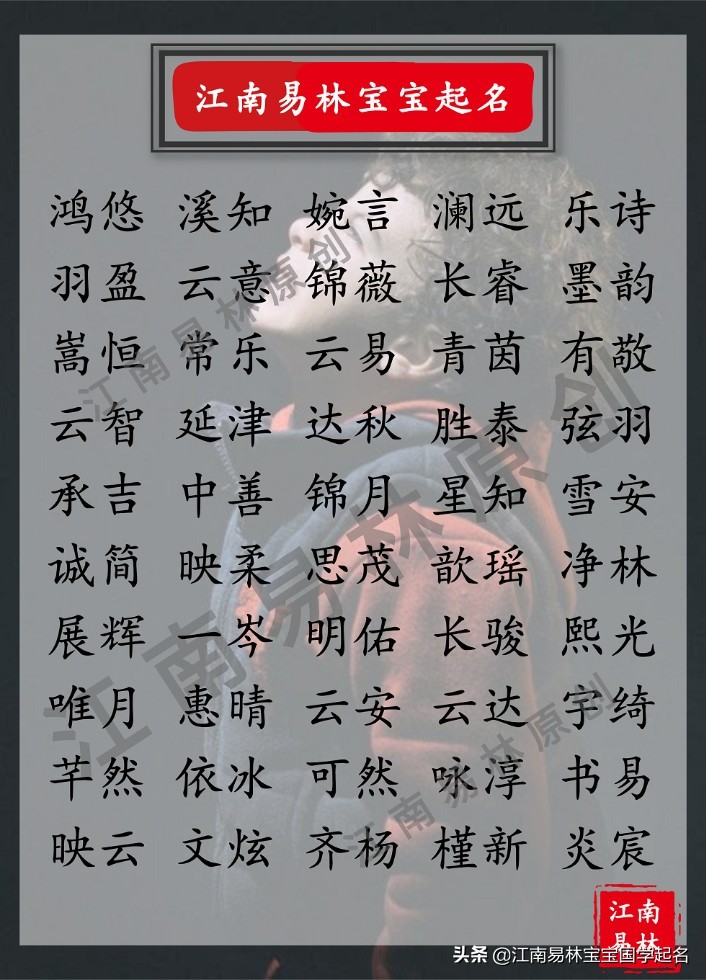 江南易林宝宝起名
鸿悠 溪知 婉言 澜远 乐诗
羽盈 云意 锦薇 长睿 墨韵
嵩恒 常乐 云易 青茵 有敬
云智 延津 达秋 胜泰 弦羽
承吉 中善 锦月 星知 雪安
诚简 映柔 思茂 歆瑶 净林
展辉 一岑 明佑 长骏 熙光
唯月 惠晴 云安 云达 宇绮
芊然 依冰 可然 咏淳 书易
映云 文炫 齐杨 槿新 炎宸
江南易林原创
江南易林原创
江南易林原创
江南
易林
头条 @江南易林宝宝国学起名